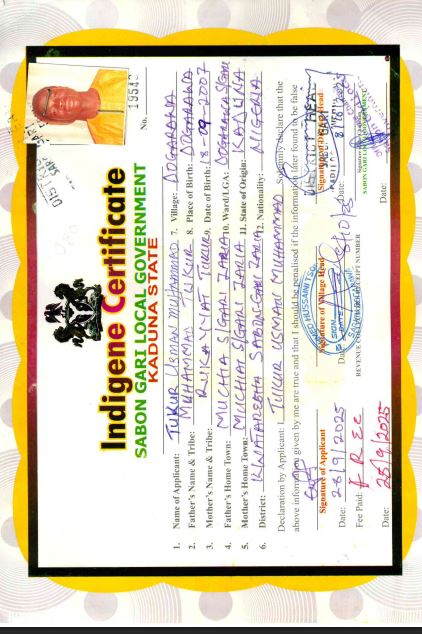 19543
No.
Indigene Certificate
SABON GARI LOCAL GOVERNMENT
KADUNA STATE
1. Name of Applicant: TUKUR USMAN MUHAMMAD 7. Village: DOGARAWA
2. Father's Name & Tribe: MUHAMMAD TUKUR 8. Place of Birth: DOGARAWA
3. Mother's Name & Tribe: RUKAYYAT TUKUR 9. Date of Birth: 18-09-2007
4. Father's Home Town: MUCHIA S/GARI ZARIA 10. Ward/LGA: DOGARAWA S/GARI
5. Mother's Home Town: MUCHIA S/GARI ZARIA 11. State of Origin: KADUNA
6. District: SABON GARI ZARIA 12. Nationality: NIGERIA
Declaration by Applicant: I TUKUR USMAN MUHAMMAD Solemnly declare that the
above information given by me are true and that I should be penalised if the information later found to be false
Signature of Applicant Signature of Village Head Signature of District Head
Date: 28/9/2025 Date:
Fee Paid: FREE REVENUE COLLECTOR RECEIPT NUMBER SABON GARI
Date: 28/9/2025 Date: